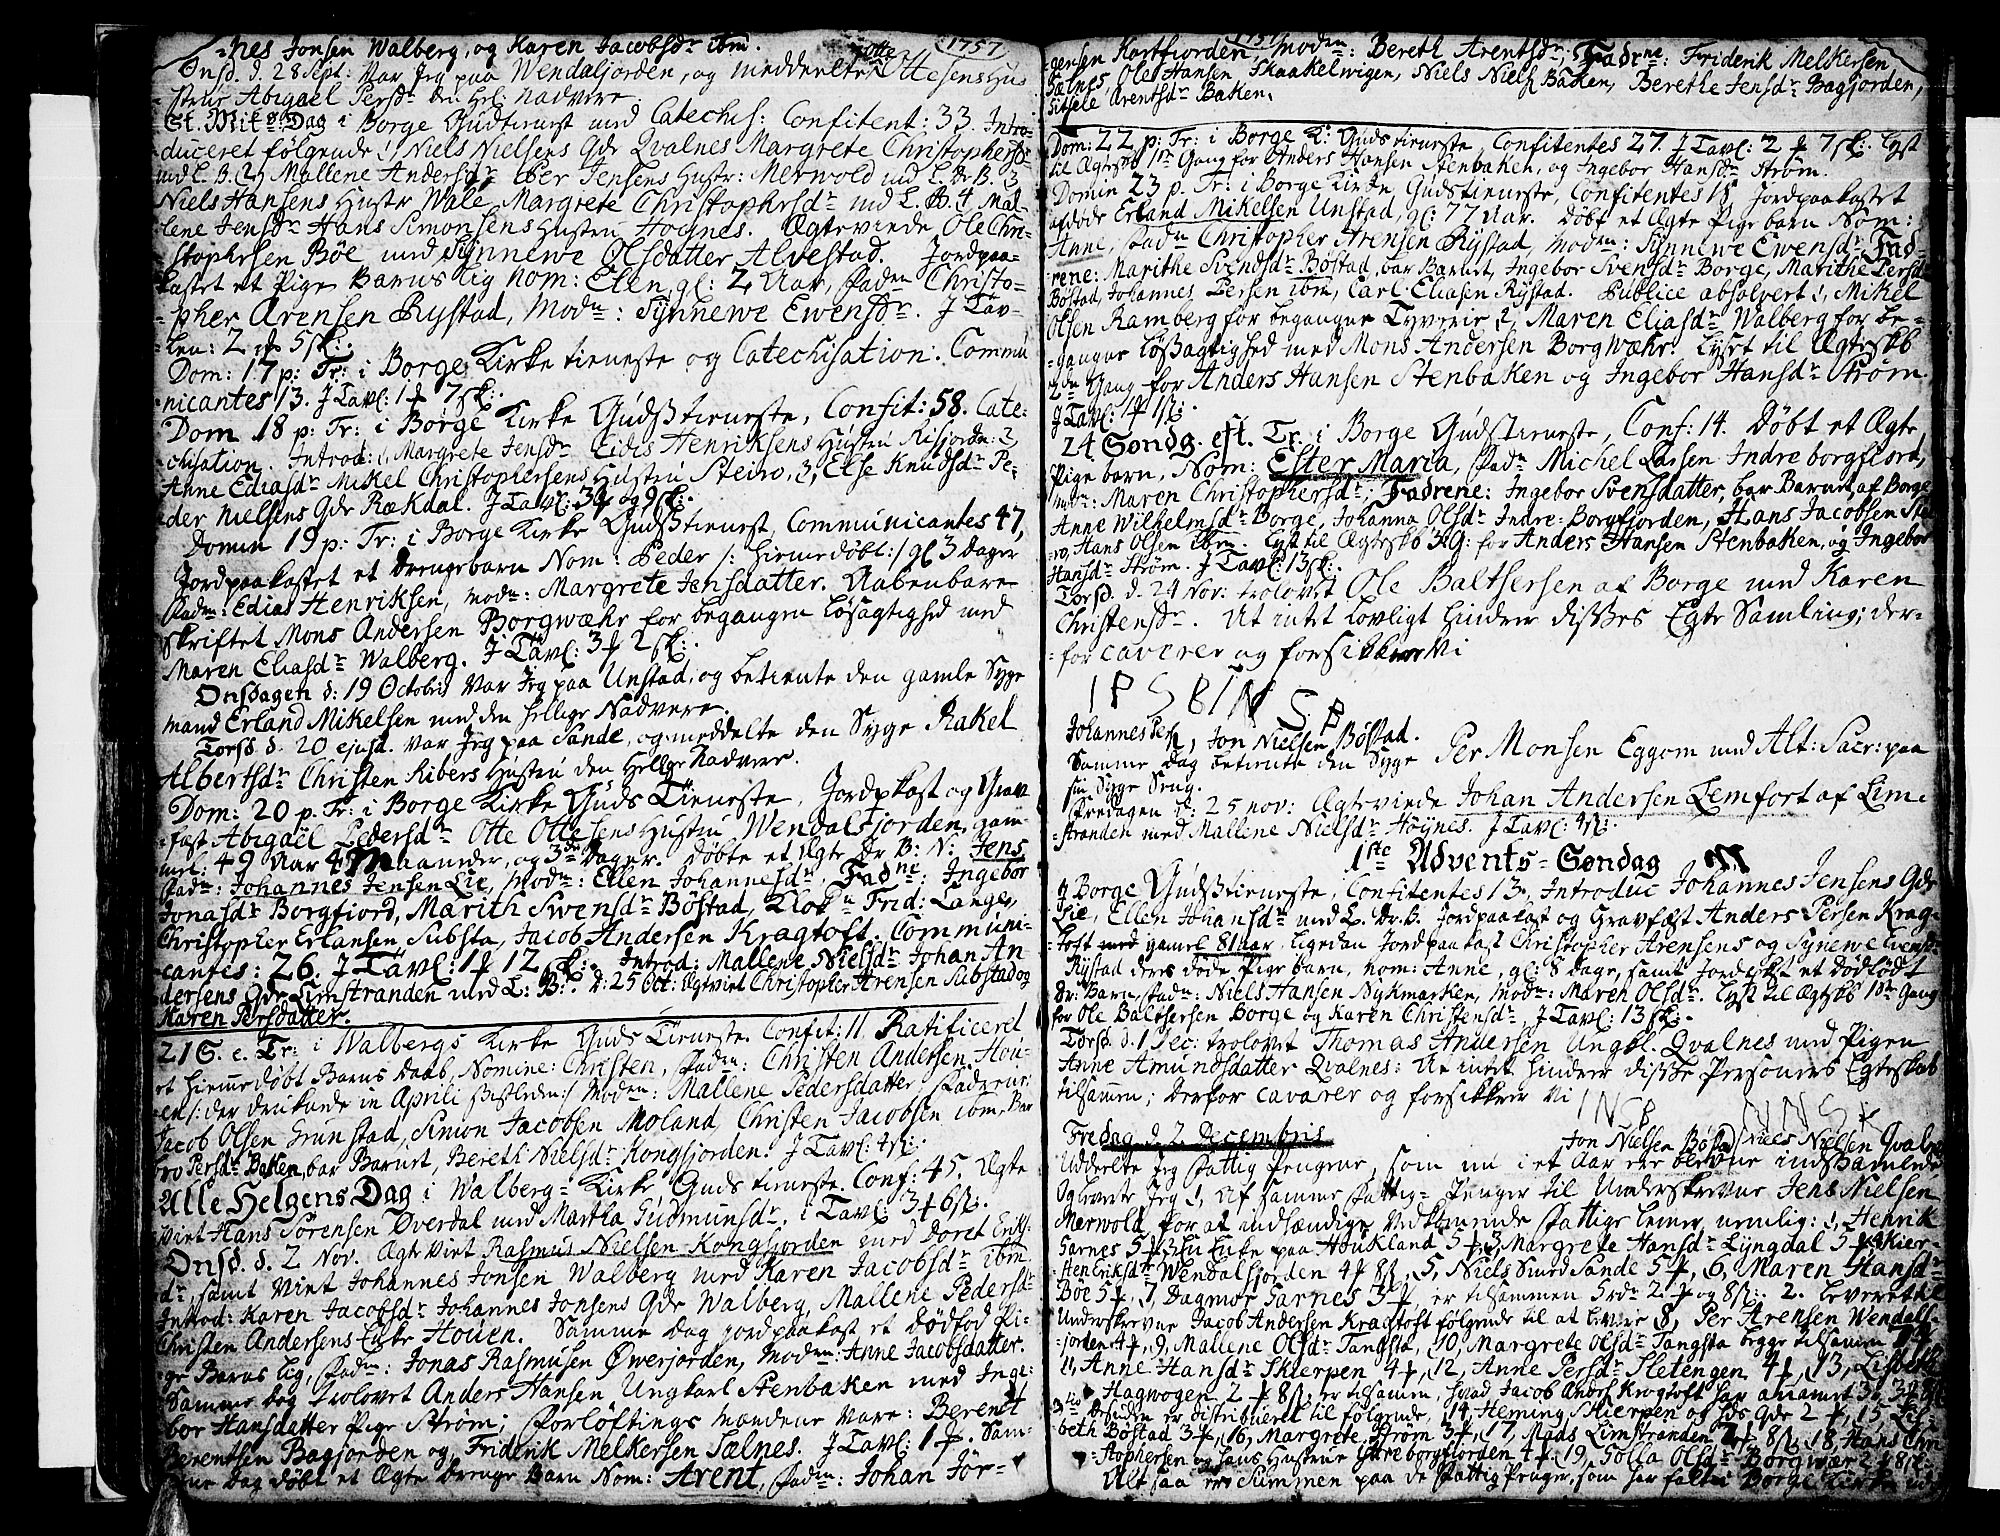 1757
-nes Jonsen Walberg, og Karen Jacobsdr ibm.
Onsd. d. 28 Sept: var Jeg paa Wendalfiorden, og meddeelte Otte Ottesens Hus
strue Abigael Persdr den Hel: Nadvere.
St. Mik: Dag i Borge Gudstienest med Catechis: Confitent: 33. Intro-
duceret følgende 1, Niels Nielsens Qde Qvalnes Margrete Christophersdr
med L. B. 2, Mallene Andersdr Iver Jensens Hustr: Merwold med L. Dr B. 3
Niels Hansens Hustr Wale Margrete Christophersdr med L. B. 4 Mal-
lene Jensdr Hans Simonsens Hustru Høynes. Ægteviede Ole Chri-
stophersen Böe med Synnewe Olsdatter Alvestad. Jordpaa-
kastet et Pige Barns Lig Nom: Elen, gl: 2 Aar, Fadn Christo-
-pher Arensen Rystad, Modn: Synnewe Ewensdr. J Tav-
len: 2 ⸸ 5 sk:.
Dom: 17 p: Tr: i Borge Kirke tieneste og Catechisation: Commu
nicantes 13. J Tavl: 1 ⸸ 7 sk:.
Dom 18 p: Tr: i Borge Kirke Gudstieneste, Confit: 58. Cate-
chisation. Introd: 1, Margrete Jensdr Edis Henriksens Hustru Risjordn: 2
Anne Ediasdr Mikel Christophersens Hustru Steiro, 3, Else Knudsdr Pe-
der Nielsens Qde Rækdal. J Tavl: 3 ⸸ og 9 sk:.
Domin 19 p: Tr: i Borge Kirke Gudstienest, Communicantes 47,
Jordpaakastet et Drengebarn Nom: Peder /: hiemmedöbt :/ gl 3 dager
Fadn: Edias Henriksen, Modn: Margrete Jensdatter. Aabenbare
skriftet Mons Andersen Borgwæhr for begangen Løsagtighed med
Maren Eliasdr Walberg. J Tavl: 3 ⸸ 2 sk:.
Onsdagen d: 19 Octobris var Jeg paa Unstad, og betiente den gamle Syge
mand Erland Mikelsen med den hellige Nadvere.
Torsd d. 20 ejusd. var Jeg paa Sande, og meddelte den Syge Rakel
Albertsdr Christen Ribers Hustru den Hellge Nadvere.
Dom: 20 p. Tr: i Borge Kirke Guds Tieneste, Jordpkast og Grav
fæst Abigaël Pedersdr Otte Ottesens Hustru Wendalsfjorden, gam-
mel: 49 Aar 4 Maaneder, og 3de Dager. Döbte et Ægte Dr B: N: Jens
Fadn: Johannes Jensen Lie, Modn: Ellen Johannesdr, Fadne: Ingebor
Jonasdr Borgfiord, Marith Swensdr Böstad, Klokn Frid: Lange,
Christopher Erlansen, Substa, Jacob Andersen Kragtoft. Communi-
cantes: 26. J Tavl: 1 ⸸ 12 sk:. Introd: Mallene Nielsdr Johan An
dersens Qde Limstranden med L: B:. d: 25 Oct: Ægtviet Christopher Arensen Substad og
Karen Persdatter.
21 S. e. Tr: i Walbergs Kirke Guds Tieneste. Confit: 11. Ratificeret
et hiemedöbt Barns Daab, Nomine: Christen, Fadn: Christen Andersen Hou-
en /: der druknede in Aprili sistleden :/ Modn: Mallene Pedersdatter. Fadrene:
Jacob Olsen Grunstad, Simon Jacobsen Moland, Christen Jacobsen ibm, Bar
bro Persdr Baken, bar Barnet, Bereth Nielsdr Kongsjorden. J Tavl: 4 sk:.
Alle Helgens Dag i Walberg= Kirke Guds tieneste. Conf: 45. Ægte
viet Hans Sörensen Øverdal med Martha Gudmunsdr, i Tavl: 3 ⸸ 6 sk:.
Onsd. d. 2 Nov. Ægteviet Rasmus Nielsen Kongsjorden med Doret Erik-
dr, samt viet Johannes Jonsen Walberg med Karen Jacobsdr ibm
Introd: Karen Jacobsdr Johannes Jonsens Qde Walberg, Mallene Pedersdr
Christen Andersens Enke Houen. Samme Dag Jordpaakast et dödföd Pi-
ge Barns Lig, Fadn: Jonas Rasmusen Øwerjorden, Modn: Anne Jacobsdatter.
Samme Dag trolovet Anders Hansen Ungkarl Stenbaken med Inge-
bor Hansdatter Pige Ström; Forlöftings Mændene vare: Berent
Berentsen Bagjorden og Friderik Melkersen Sælnes. J Tavl: 1 ⸸. Sam-
me Dag döbt et Ægte Drenge Barn Nom: Arent, Fadn: Johan Jör-
1757
gensen Kartfiorden, Modn: Bereth Arentsdr, Fadrne: Friderik Melkersen
Sælnes, Ole Hansen Skaakelwigen, Niels Niels Baken, Berethe Jensdr Bagjorden,
Sitsele Arentsdr Baken.
Dom: 22 p: Tr: i Borge K: Guds tieneste, Confitentes 27. J Tavl: 2 ⸸ 7 sk: Lyst
til Ægteskb 1te Gang for Anders Hansen Stenbaken, og Ingebor Hansdr Ström.
Domin 23 p. Tr: i Borge Kirke Gudstieneste, Confitentes 18. Jordpaakastet
afdöde Erland Mikelsen Unstad, gl: 77 Aar. Döbt et Ægte Pige barn Nom:
Anne, Fadn Christopher Arensen Rystad, Modn: Synnewe Ewensdr, Fad-
rene: Marithe Svendsdr Böstad, bar Barnet, Ingebor Svensdr Borge, Marithe Persdr
Böstad, Johannes Persen ibm, Carl Eliasen Rystad. Publice absolvert 1, Mikel
Olsen Ramberg for begangne Tyverie, 2, Maren Eliasdr Walberg for be-
gangne Løsagtighed med Mons Andersen Borgwæhr. Lyset til Ægteskb
2den Gang for Anders Hansen Stenbaken og Ingebor Hansdr Ström.
J Tavl: 1 ⸸ 1 sk:.
24 Söndg. eft. Tr: i Borge Gudstieneste, Conf: 14. Döbt et Ægte
Pige barn, Nom: Ester Maria, Fadn Michel Larsen Indre borgfiord,
Modn: Maren Christophersdr, Fadrene: Ingebor Svensdatter, bar Barnet af Borge
Anne Wilhelmsdr Borge, Johanna Olsdr Indre-Borgfjorden, Hans Jacobsen Stei
ro, Hans Olsen ibm. Lyst til Ægteskb 3 G: for Anders Hansen Stenbaken, og Ingebor
Hansdr Ström. J Tavl: 13 sk:.
Torsd. d. 24 Nov: trolovet Ole Baltsersen af Borge med Karen
Christensdr. At intet Lovligt hindrer disses Egte Samling; der-
-for caverer og forsikkrer Vi
I P S B I N S B
Johannes Persen, Jon Nielsen Böstad.
Samme Dag betiente den Syge Per Monsen Eggom med Alt: Sacr: paa
sin Syge Seng.
Fredagen d: 25 nov: Ægteviede Johan Andersen Lemfort af Lim-
stranden med Mallene Nielsdr Höynes. J Tavl: 4 sk:.
1ste Advents=Söndag
J Borge Gudstieneste, Confitentes 13. Introduc Johannes Jensens Qde
Lie, Ellen Johansdr med L. Dr. B. Jordpaakast og Gravfæst Anders Persen Krag-
toft med gamel 81 Aar. Ligeden Jordpaakast Christopher Arensens og Synewe Ewensdr
Rystad deres döde Pige barn, nom: Anne, gl: 8 Dage, samt Jordpkst et dödfödt
Dr: Barn, Fadn: Niels Hansen Nykmarken, Modn: Maren Olsdr. Lyst til Ægtskb 1te Gang
for Ole Baltsersen Borge og Karen Christensdr. J Tavl: 13 sk:.
Torsd. d. 1 Dec: trolovet Thomas Andersen Ungkl. Qvalnes med Pigen
Anne Amundsdatter Qvalnes: At intet hindrer disse Personers Egteskab
tilsamen; derfor caverer og forsikkrer Vi I N S B N N S
Jon Nielsen Böstad Niels Nielsen Qvalnes
Fredag d. 2. Decembris
Uddeelte Jeg Fattig Pengene, som nu i et Aar ere blevne indsamlede
Og leverte Jeg 1, Af samme Fattig= Penger til Underskrevne Jens Nielsen
Merwold for at indhændige vedkommende Fattige lemer, nemlig: 1, Henrik
Sarnes 5 ⸸, 2, En Enke paa Houkland 5 ⸸, 3, Margrete Hansdr Lyngdal 5 ⸸, 4, Kier-
sten Eriksdr Wendalsjorden 4 ⸸ 8 sk, 5, Niels Smed Sande 5 ⸸, 6, Maren Hansdr
Böe 5 ⸸, 7, Dagmor Sarnes 3 ⸸ er tilsammen 5 rdr 2 ⸸ og 8 sk:. 2. Leveret til
Underskrevne Jacob Andersen Kragtoft følgende til at levere 8, Per Arensen Wendals-
jorden 4 ⸸, 9, Mallene Olsdr Tangsta, 10, Margrete Olsdr Tangsta begge tilsamen
11, Anne Hansdr Skierpen 4 ⸸, 12, Anne Persdr Sletengen 4 ⸸, 13, Lisbeth
Hagwogen 2 ⸸ 8 sk, er tilsamen, hvad Jacob Anders Kragtoft har anamet 3 rd 3 ⸸
3tio Desuden er distribueret til følgende, 14, Heming Skierpen og hs Qde 2 ⸸, 15, Lis-
beth Böstad 3 ⸸, 16, Margrete Ström 3 ⸸, 17, Mads Limstranden 2 ⸸ 8 sk, 18, Hans Chri
stophersen og hans Hustrue Ytreborgfjorden 4 ⸸, 19, Golla Olsdr Borgwær 2 ⸸ 8 sk:.
Alt saa er Summen paa de Fattig Penger, som har faldet i Borge Kirke